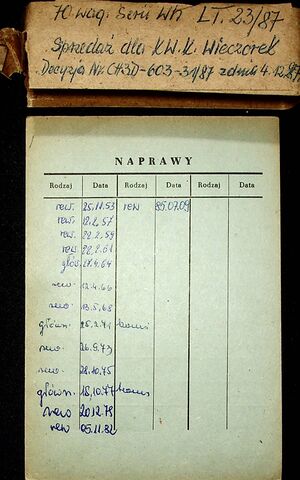 10 wag. Serii Wh LT. 23/87
Sprzedaż dla K.W.K. Wieczorek
Decyzja Nr CH3D-603-31/87 z dnia 4.12.87
NAPRAWY
Rodzaj Data Rodzaj Data Rodzaj Data
rew. 25.11.53 rew 85.07.09
rew. 12.2.57
rew. 22.2.59
rew. 22.2.61
głów. 27.4.64
rewo 12.4.66
rewo 13.5.68
główn. 25.2.71
rewo. 26.9.73
rewo. 28.10.75
główn. 18.10.77
rewo 20.12.79
rew 05.11.82